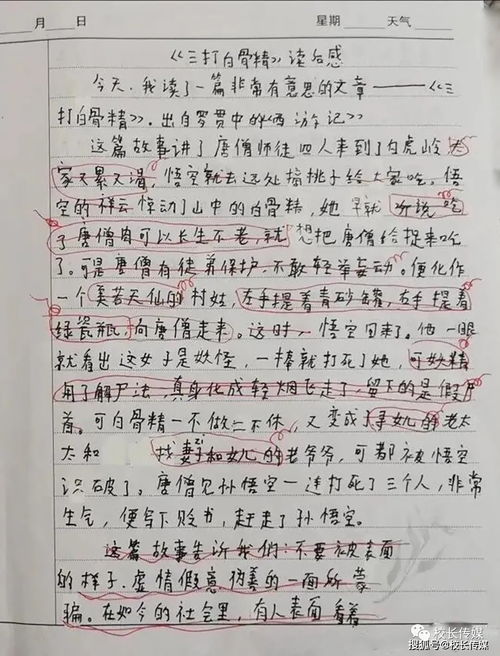 月 日 星期 天气
《三打白骨精》读后感
今天,我读了一篇非常有意思的文章——《三
打白骨精》。出自罗贯中的《西游记》
这篇故事讲了唐僧师徒四人来到了白虎岭,大
家又累又渴,悟空就去远处摘桃子给大家吃。悟
空的祥云惊动了山中的白骨精,她早就听说吃
了唐僧肉可以长生不老,就想把唐僧给捉来吃
了。可是唐僧有徒弟保护,不敢轻举妄动。便化作
一个美若天仙的村姑,左手提着青砂罐,右手提着
绿瓷瓶,向唐僧走来。这时,悟空回来了。他一眼
就看出这女子是妖怪,一棒就打死了她,可妖精
用了解尸法,真身化成轻烟飞走了,留下的是假尸
首。可白骨精一不做二不休,又变成了寻女儿的老太
太和 找妻子和女儿的老爷爷,可都被悟空
识破了。唐僧见孙悟空一连打死了三个人,非常
生气,便写下贬书,赶走了孙悟空。
这篇故事告诉我们:不要被表面
的样子、虚情假意伪善的一面所蒙
骗。在如今的社会里,有人表面看着
校长传媒
搜狐号@校长传媒